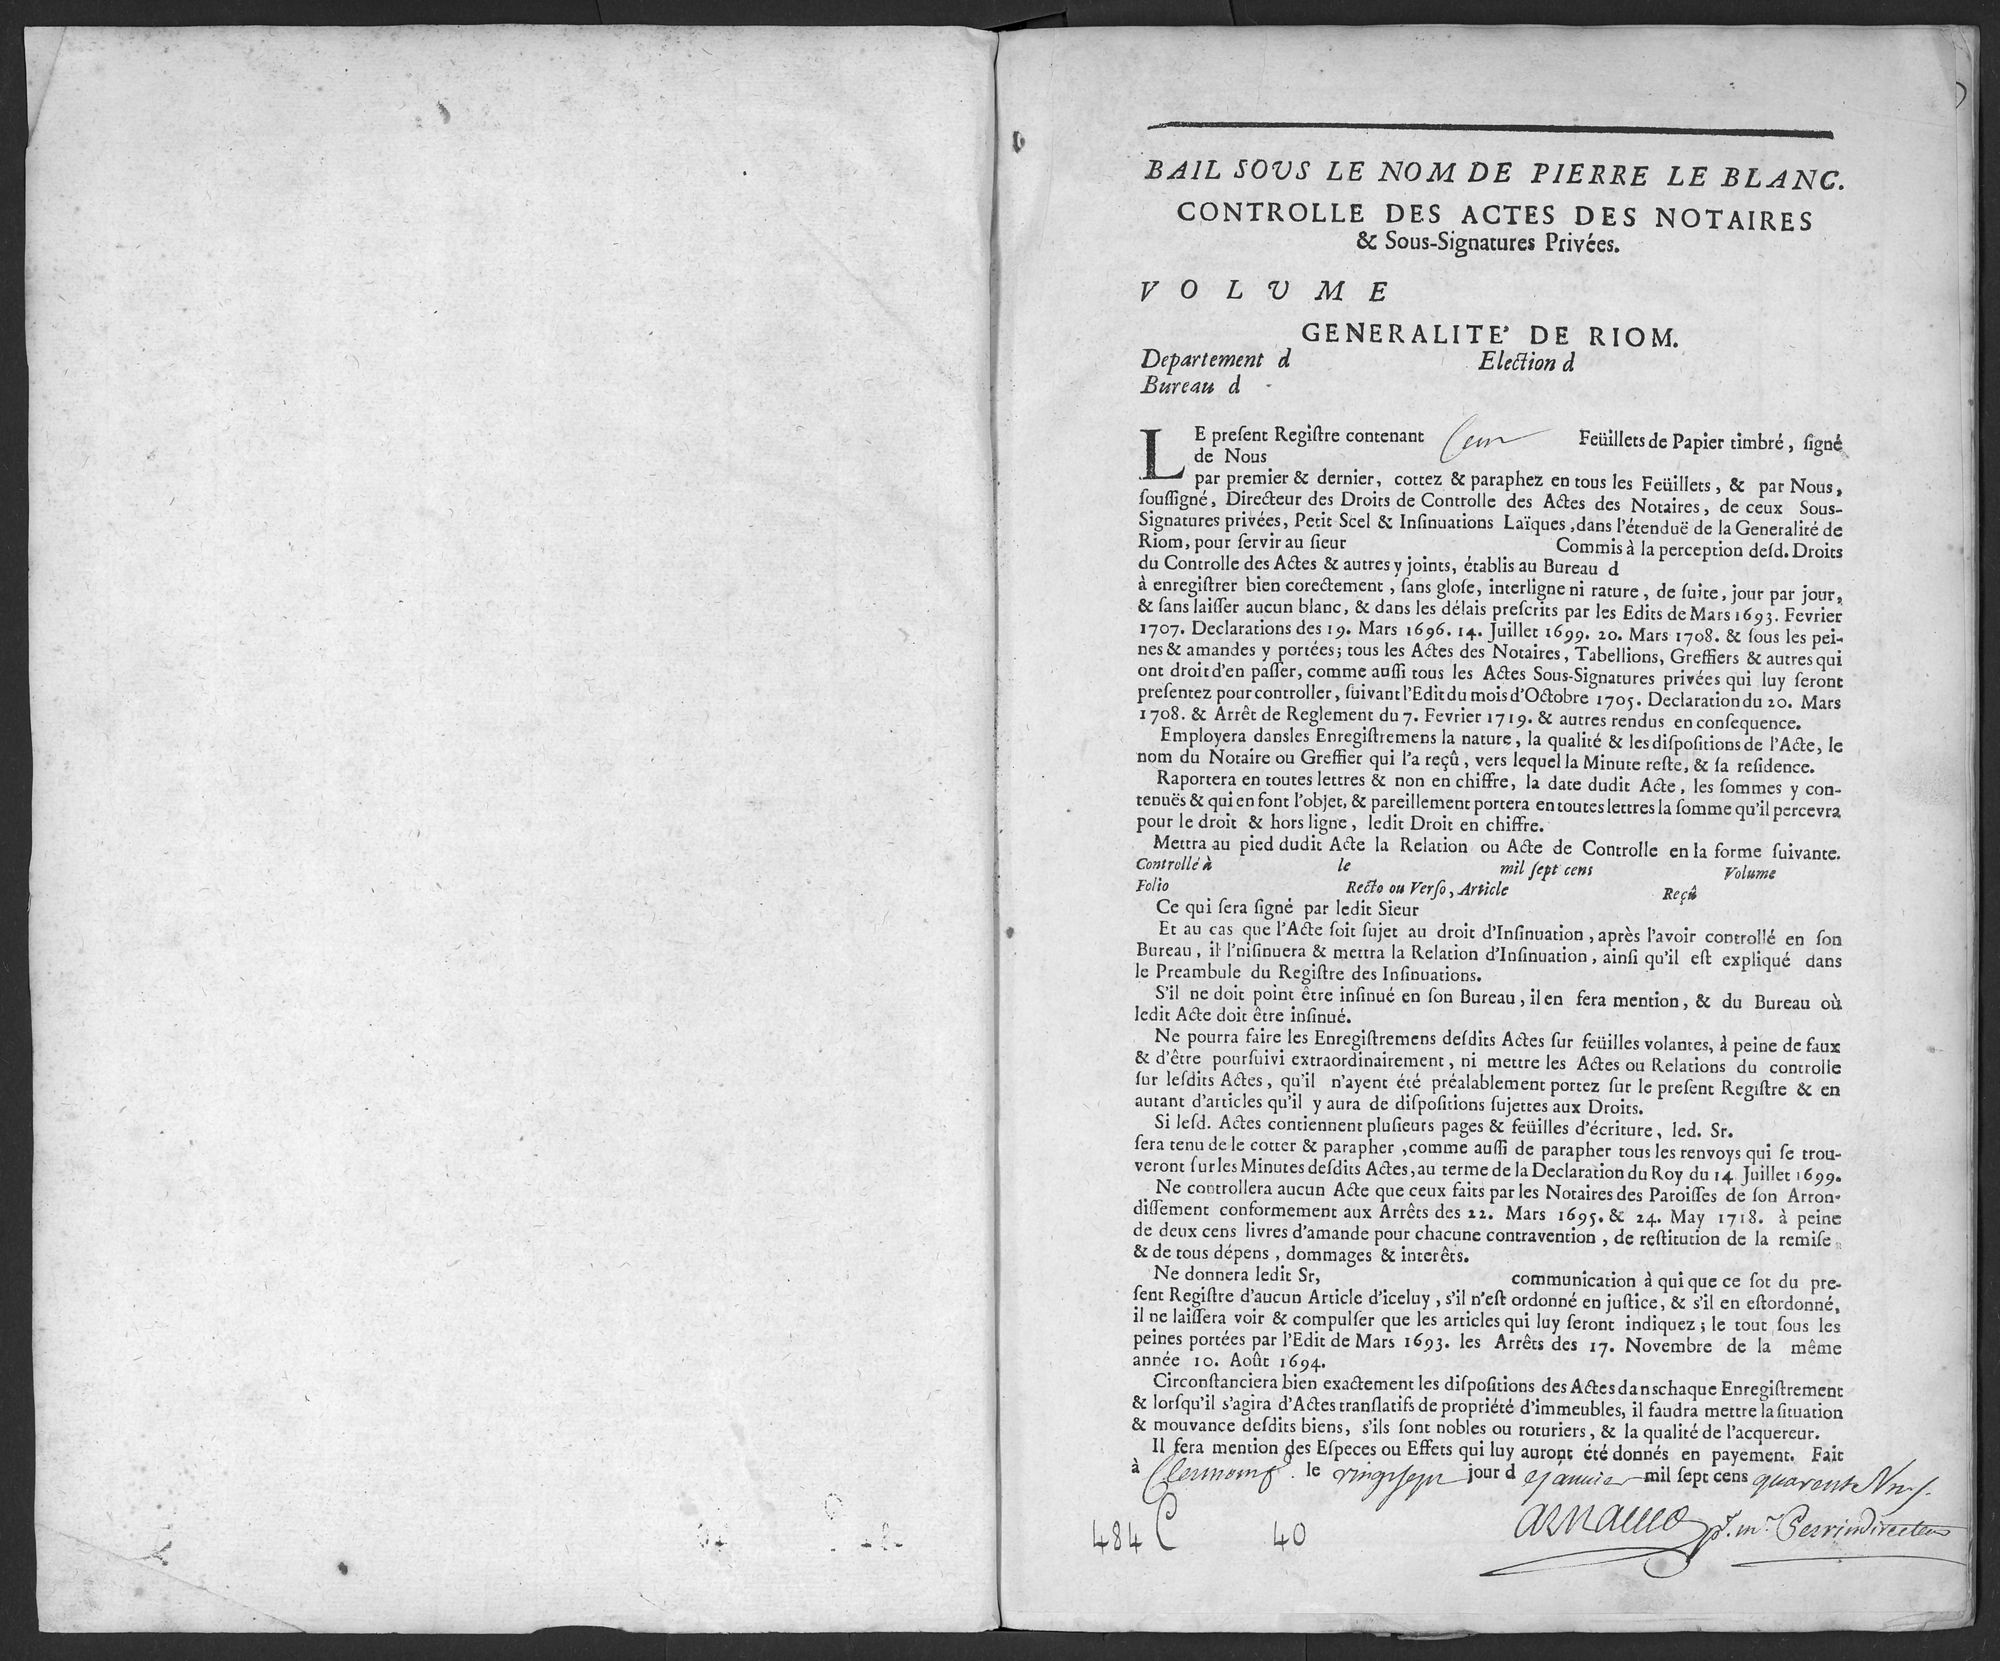 BAIL SOUS LE NOM DE PIERRE LE BLANC.
CONTROLLE DES ACTES DES NOTAIRES
& Sous-Signatures Privées.
VOLUME
GENERALITE' DE RIOM.
Departement d Election d
Bureau d
LE preſent Regiſtre contenant Cent Feüillets de Papier timbré, ſigné
de Nous
par premier & dernier, cottez & paraphez en tous les Feüillets, & par Nous,
ſouſſigné, Directeur des Droits de Controlle des Actes des Notaires, de ceux Sous-
Signatures privées, Petit Scel & Inſinuations Laïques, dans l'étenduë de la Generalité de
Riom, pour ſervir au ſieur Commis à la perception deſd. Droits
du Controlle des Actes & autres y joints, établis au Bureau d
à enregiſtrer bien corectement, ſans gloſe, interligne ni rature, de ſuite, jour par jour,
& ſans laiſſer aucun blanc, & dans les délais preſcrits par les Edits de Mars 1693. Fevrier
1707. Declarations des 19. Mars 1696. 14. Juillet 1699. 20. Mars 1708. & ſous les pei-
nes & amandes y portées; tous les Actes des Notaires, Tabellions, Greffiers & autres qui
ont droit d'en paſſer, comme auſſi tous les Actes Sous-Signatures privées qui luy ſeront
preſentez pour controller, ſuivant l'Edit du mois d'Octobre 1705. Declaration du 20. Mars
1708. & Arrêt de Reglement du 7. Fevrier 1719. & autres rendus en conſequence.
Employera dansles Enregiſtremens la nature, la qualité & les diſpoſitions de l'Acte, le
nom du Notaire ou Greffier qui l'a reçû, vers lequel la Minute reſte, & ſa reſidence.
Raportera en toutes lettres & non en chiffre, la date dudit Acte, les ſommes y con-
tenuës & qui en font l'objet, & pareillement portera en toutes lettres la ſomme qu'il percevra
pour le droit & hors ligne, ledit Droit en chiffre.
Mettra au pied dudit Acte la Relation ou Acte de Controlle en la forme ſuivante.
Controllé à le mil ſept cens Volume
Folio Recto ou Verſo, Article Reçû
Ce qui ſera ſigné par ledit Sieur
Et au cas que l'Acte ſoit ſujet au droit d'Inſinuation, après l'avoir controllé en ſon
Bureau, il l'niſinuera & mettra la Relation d'Inſinuation, ainſi qu'il eſt expliqué dans
le Preambule du Regiſtre des Inſinuations.
S'il ne doit point être inſinué en ſon Bureau, il en fera mention, & du Bureau où
ledit Acte doit être inſinué.
Ne pourra faire les Enregiſtremens deſdits Actes ſur feüilles volantes, à peine de faux
& d'être pourſuivi extraordinairement, ni mettre les Actes ou Relations du controlle
ſur leſdits Actes, qu'il n'ayent été préalablement portez ſur le preſent Regiſtre & en
autant d'articles qu'il y aura de diſpoſitions ſujettes aux Droits.
Si leſd. Actes contiennent pluſieurs pages & feüilles d'écriture, led. Sr.
ſera tenu de le cotter & parapher, comme auſſi de parapher tous les renvoys qui ſe trou-
veront ſur les Minutes deſdits Actes, au terme de la Declaration du Roy du 14. Juillet 1699.
Ne controllera aucun Acte que ceux faits par les Notaires des Paroiſſes de ſon Arron-
diſſement conformement aux Arrêts des 22. Mars 1695. & 24. May 1718. à peine
de deux cens livres d'amande pour chacune contravention, de reſtitution de la remiſe
& de tous dépens, dommages & interêts.
Ne donnera ledit Sr, communication à qui que ce ſot du pre-
ſent Regiſtre d'aucun Article d'iceluy, s'il n'eſt ordonné en juſtice, & s'il en eſtordonné,
il ne laiſſera voir & compulſer que les articles qui luy ſeront indiquez; le tout ſous les
peines portées par l'Edit de Mars 1693. les Arrêts des 17. Novembre de la même
année 10. Août 1694.
Circonſtanciera bien exactement les diſpoſitions des Actes danschaque Enregiſtrement
& lorſqu'il s'agira d'Actes tranſlatifs de propriété d'immeubles, il faudra mettre la ſituation
& mouvance deſdits biens, s'ils ſont nobles ou roturiers, & la qualité de l'acquereur.
Il fera mention des Eſpeces ou Effets qui luy auront été donnés en payement. Fait
à Clermont le vingtsept jour d ejanvier mil ſept cens quarente Un
Arnauld pr. mr Perrin directeur
484 C 40